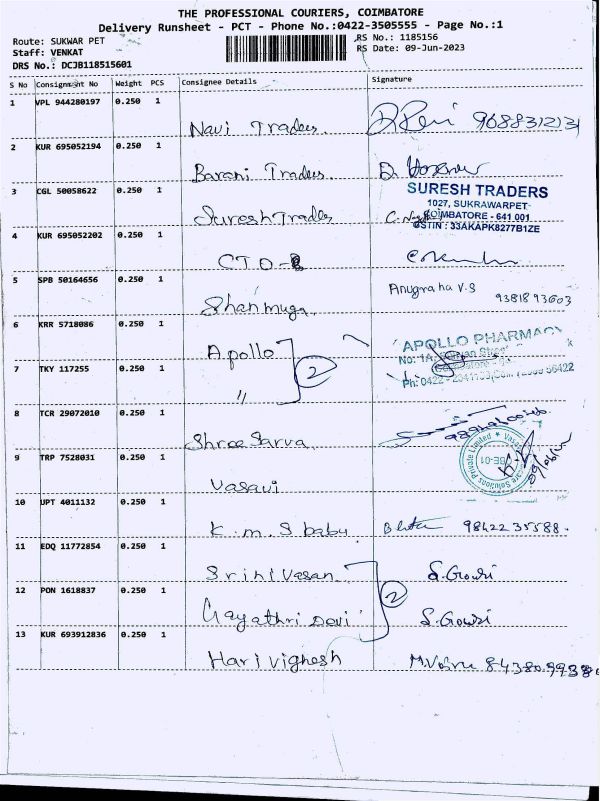 THE PROFESSIONAL COURIERS, COIMBATORE
Delivery Runsheet - PCT - Phone No.:0422-3505555 - Page No.:1
Route: SUKWAR PET
RS No.: 1185156
Staff: VENKAT
RS Date: 09-Jun-2023
DRS No.: DCJB118515601
S No Consignment No Weight PCS Consignee Details Signature
1 VPL 944280197 0.250 1
Navi Traders 9688312131
2 KUR 695052194 0.250 1
Barani Traders
3 CGL 50058622 0.250 1
Suresh Traders
SURESH TRADERS
1027, SUKRAWARPET
COIMBATORE - 641 001
GSTIN : 33AKAPK8277B1ZE
4 KUR 695052202 0.250 1
CTO-
5 SPB 50164656 0.250 1
Shanmuga Anugraha V.S
6 KRR 5718086 0.250 1
Apollo 2
APOLLO PHARMACY
7 TKY 117255 0.250 1
"
8 TCR 29072010 0.250 1
Shree Sarva
9 TRP 7528031 0.250 1
Vasavi
10 UPT 4011132 0.250 1
K.m.S babu 98422 35588.
11 EDQ 11772854 0.250 1
Srinivasan S. Gowri
12 PON 1618837 0.250 1
2
Gayathri Devi S. Gowri
13 KUR 693912836 0.250 1
Harivighesh